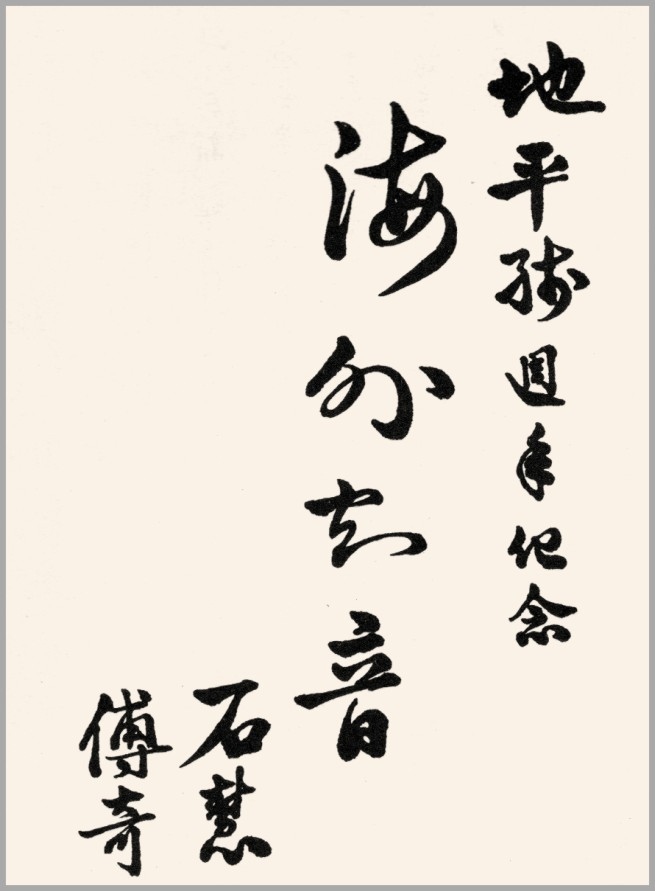 地平线週年纪念
海外知音
石慧
傅奇